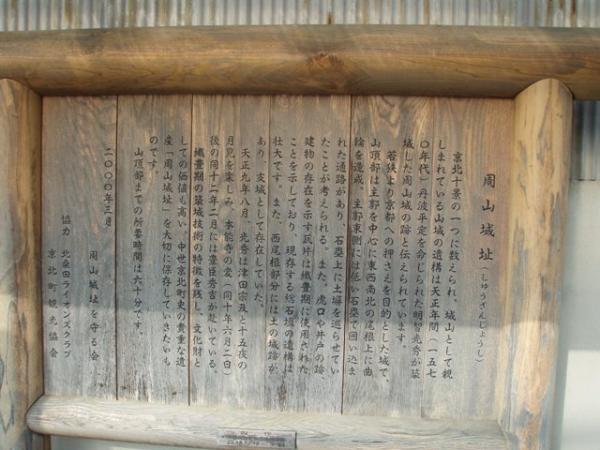 周山城址(しゅうざんじょうし)
京北十景の一つに数えられ、城山として親
しまれている山城の遺構は天正年間(一五七
〇年代)丹波平定を命じられた明智光秀が築
城した周山城の跡と伝えられています。
若狭より京都への押さえを目的とした城で、
山頂部は主郭を中心に東西南北の尾根上に曲
輪を造成。主郭東側には低い石塁で囲い込ま
れた通路があり、石塁上に土塀を巡らせてい
たことが考えられる。また、虎口や井戸の跡、
建物の存在を示す瓦片は織豊期に使用された
ことを示しており、現存する総石垣の遺構は
壮大です。また、西尾根部分には土の城跡が
あり、支城として存在していた。
天正九年八月、光秀は津田宗及と十五夜の
月見を楽しみ、本能寺の変(同十年六月二日)
後の同十二年二月には豊臣秀吉が赴いている。
織豊期の築城技術の特徴を残し、文化財と
しての価値も高い。中世京北町史の貴重な遺
産「周山城址」を大切に保存していきたいも
のです。
山頂部までの所要時間は六十分です。
二〇〇〇年三月
周山城址を守る会
協力 北桑田ライオンズクラブ
京北町観光協会